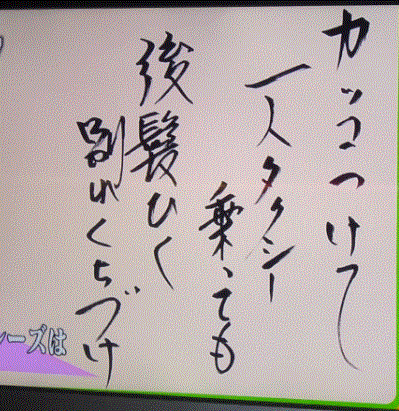 カッコつけて
一人タクシー
乗っても
後髪ひく
別れくちづけ
ーズは